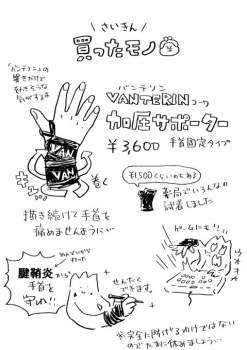 \さいきん/
買ったモノ
「バンテリン」の
響きだけで
効きそうな
気がするよ
バンテリン
VANTERINコーワ
加圧サポーター
¥3,600 手首固定タイプ
VAN
VAN
ギュッ
巻く
描き続けて手首を
痛めませんように…
¥1,500くらいのもある
薬局でいろんなの
試着しました
ゲームにも!!
腱鞘炎から
手首を
守れ!!
せんたく
できます。
※完全に防げるわけではない
のでたまに休めましょう…